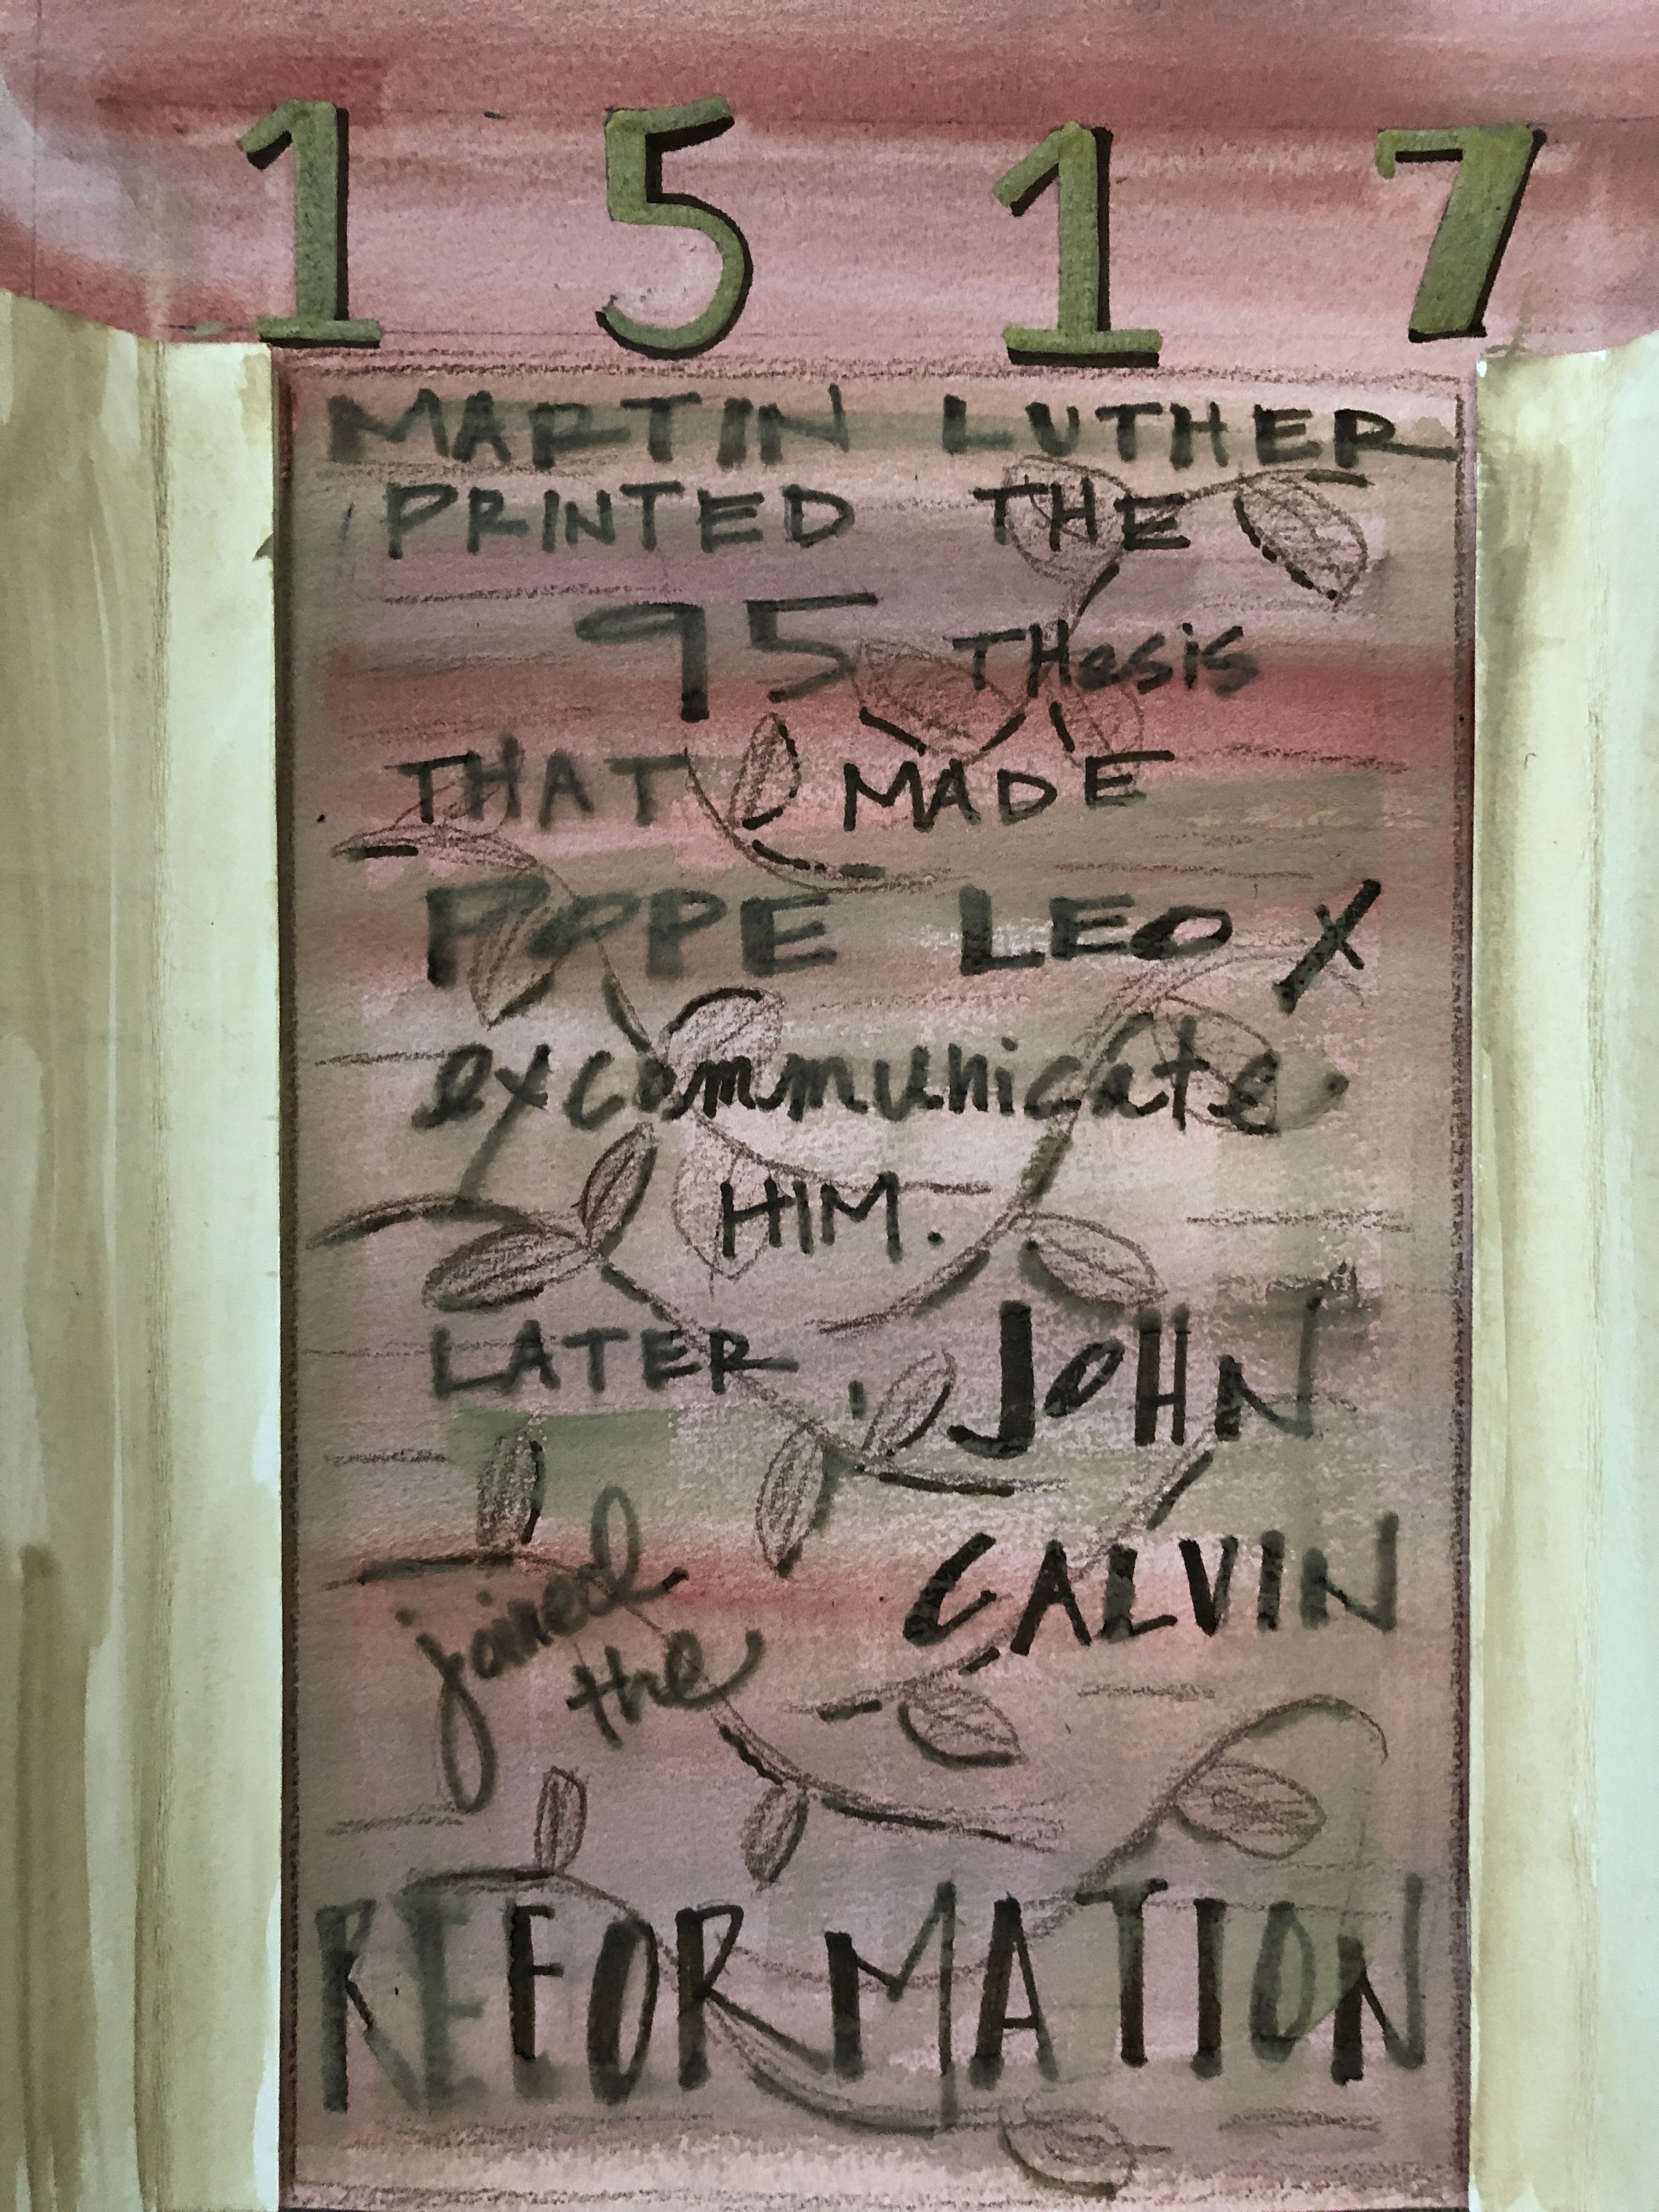 1517
MARTIN LUTHER
PRINTED THE
95 THesis
THAT MADE
POPE LEO X
excommunicate
HIM.
LATER, JOHN
CALVIN
joined
the
REFORMATION